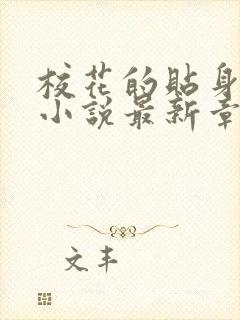 校花的貼身
小說最新章
文丰